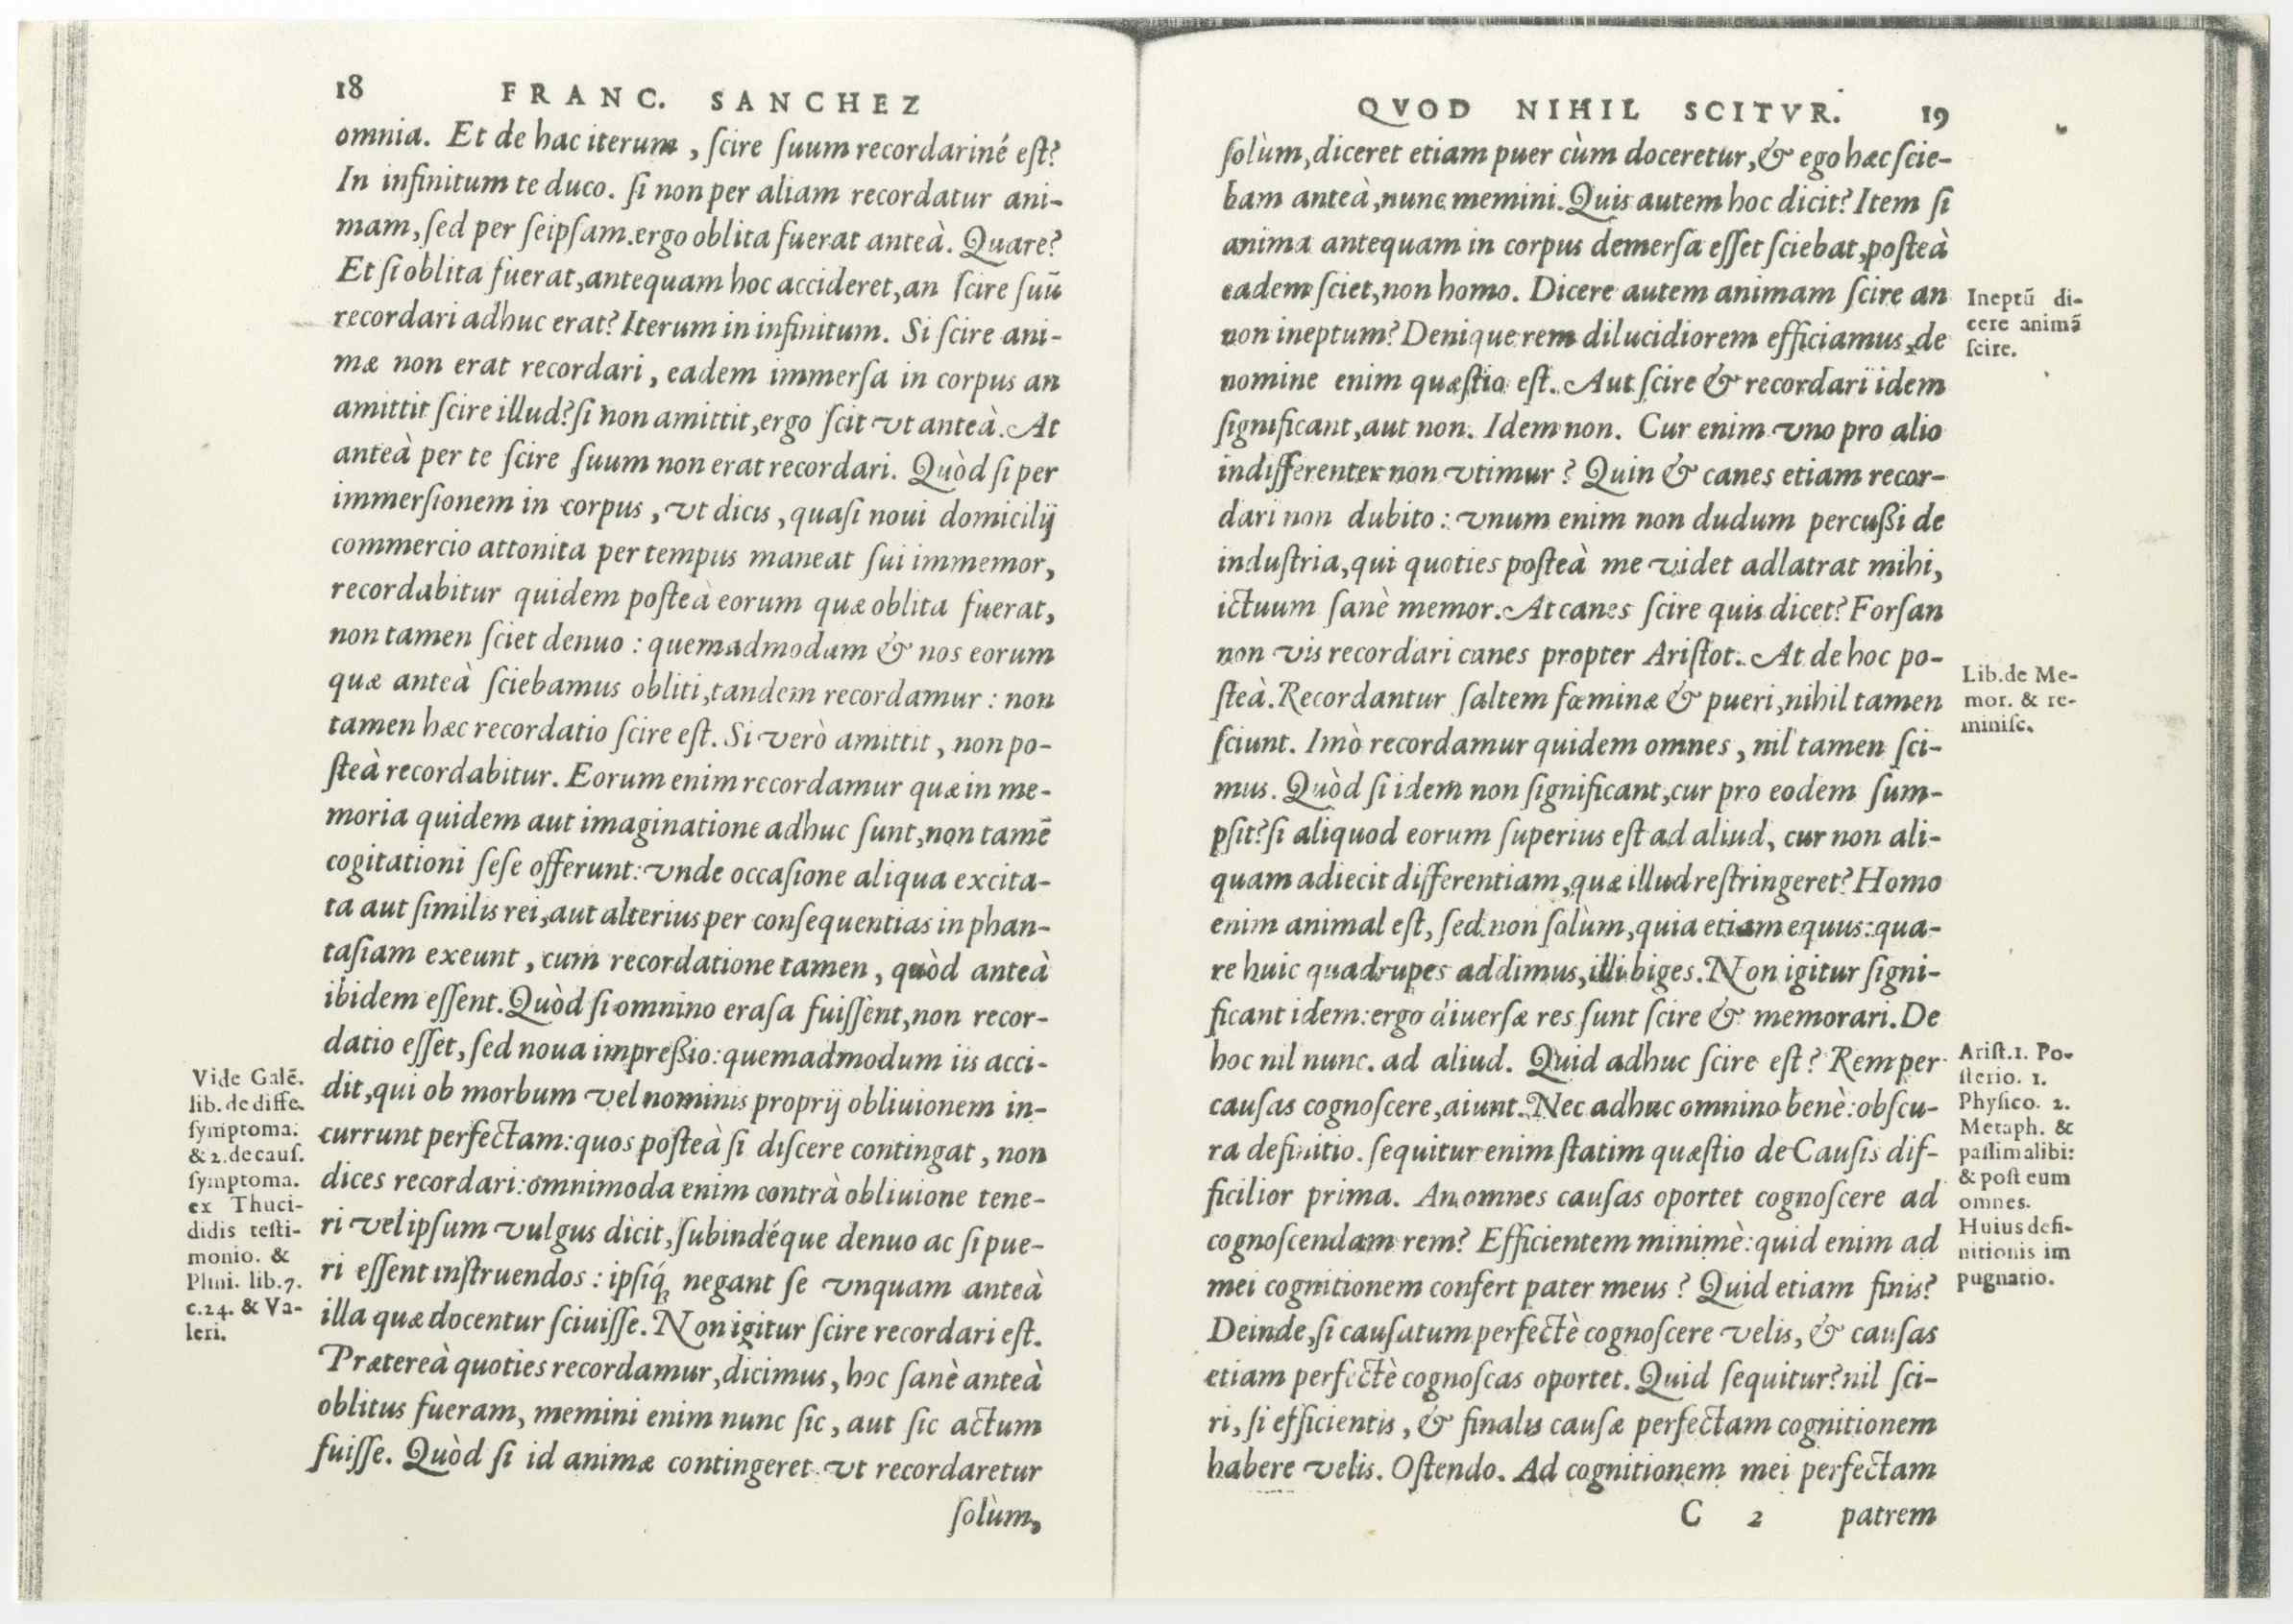 18
FRANC. SANCHEZ
omnia. Et de hac iterum, ſcire ſuum recordariné eſt?
In infinitum te duco. ſi non per aliam recordatur ani-
mam, ſed per ſeipſam. ergo oblita fuerat anteà. Quare?
Et ſi oblita fuerat, antequam hoc accideret, an ſcire ſuũ
recordari adhuc erat? Iterum in infinitum. Si ſcire ani-
mæ non erat recordari, eadem immerſa in corpus an
amittit ſcire illud? ſi non amittit, ergo ſcit vt anteà. At
anteà per te ſcire ſuum non erat recordari. Quòd ſi per
immerſionem in corpus, vt dicis, quaſi noui domicilij
commercio attonita per tempus maneat ſui immemor,
recordabitur quidem poſteà eorum quæ oblita fuerat,
non tamen ſciet denuo: quemadmodum & nos eorum
quæ anteà ſciebamus obliti, tandem recordamur: non
tamen hæc recordatio ſcire eſt. Si verò amittit, non po-
ſteà recordabitur. Eorum enim recordamur quæ in me-
moria quidem aut imaginatione adhuc ſunt, non tamẽ
cogitationi ſeſe offerunt: vnde occaſione aliqua excita-
ta aut ſimilis rei, aut alterius per conſequentias in phan-
taſiam exeunt, cum recordatione tamen, quòd anteà
ibidem eſſent. Quòd ſi omnino eraſa fuiſſent, non recor-
datio eſſet, ſed noua impreßio: quemadmodum iis acci-
dit, qui ob morbum vel nominis proprij obliuionem in-
currunt perfectam: quos poſteà ſi diſcere contingat, non
dices recordari: omnimoda enim contrà obliuione tene-
ri vel ipſum vulgus dicit, ſubindéque denuo ac ſi pue-
ri eſſent inſtruendos: ipſiq́; negant ſe vnquam anteà
illa quæ docentur ſciuiſſe. Non igitur ſcire recordari eſt.
Prætereà quoties recordamur, dicimus, hoc ſanè anteà
oblitus fueram, memini enim nunc ſic, aut ſic actum
fuiſſe. Quòd ſi id animæ contingeret vt recordaretur
ſolùm,
Vide Galẽ.
lib. de diffe.
ſymptoma.
& 2. de cauſ.
ſymptoma.
ex Thuci-
didis teſti-
monio. &
Plini. lib. 7.
c. 24. & Va-
leri.
QVOD NIHIL SCITVR.
19
ſolùm, diceret etiam puer cùm doceretur, & ego hæc ſcie-
bam anteà, nunc memini. Quis autem hoc dicit? Item ſi
anima antequam in corpus demerſa eſſet ſciebat, poſteà
eadem ſciet, non homo. Dicere autem animam ſcire an
non ineptum? Denique rem dilucidiorem efficiamus, de
nomine enim quæſtio eſt. Aut ſcire & recordari idem
ſignificant, aut non. Idem non. Cur enim vno pro alio
indifferenter non vtimur? Quin & canes etiam recor-
dari non dubito: vnum enim non dudum percußi de
induſtria, qui quoties poſteà me videt adlatrat mihi,
ictuum ſanè memor. At canes ſcire quis dicet? Forſan
non vis recordari canes propter Ariſtot. At de hoc po-
ſteà. Recordantur ſaltem fœminæ & pueri, nihil tamen
ſciunt. Imò recordamur quidem omnes, nil tamen ſci-
mus. Quòd ſi idem non ſignificant, cur pro eodem ſum-
pſit? ſi aliquod eorum ſuperius eſt ad aliud, cur non ali-
quam adiecit differentiam, quæ illud reſtringeret? Homo
enim animal eſt, ſed non ſolùm, quia etiam equus: qua-
re huic quadrupes addimus, illi biges. Non igitur ſigni-
ficant idem: ergo diuerſæ res ſunt ſcire & memorari. De
hoc nil nunc. ad aliud. Quid adhuc ſcire eſt? Rem per
cauſas cognoſcere, aiunt. Nec adhuc omnino benè: obſcu-
ra definitio. ſequitur enim ſtatim quæſtio de Cauſis dif-
ficilior prima. An omnes cauſas oportet cognoſcere ad
cognoſcendam rem? Efficientem minimè: quid enim ad
mei cognitionem confert pater meus? Quid etiam finis?
Deinde, ſi cauſatum perfectè cognoſcere velis, & cauſas
etiam perfectè cognoſcas oportet. Quid ſequitur? nil ſci-
ri, ſi efficientis, & finalis cauſæ perfectam cognitionem
habere velis. Oſtendo. Ad cognitionem mei perfectam
C 2 patrem
Ineptũ di-
cere animã
ſcire.
Lib. de Me-
mor. & re-
miniſc.
Ariſt. 1. Po-
ſterio. 1.
Phyſico. 2.
Metaph. &
paſſim alibi:
& poſt eum
omnes.
Huius defi-
nitionis im
pugnatio.